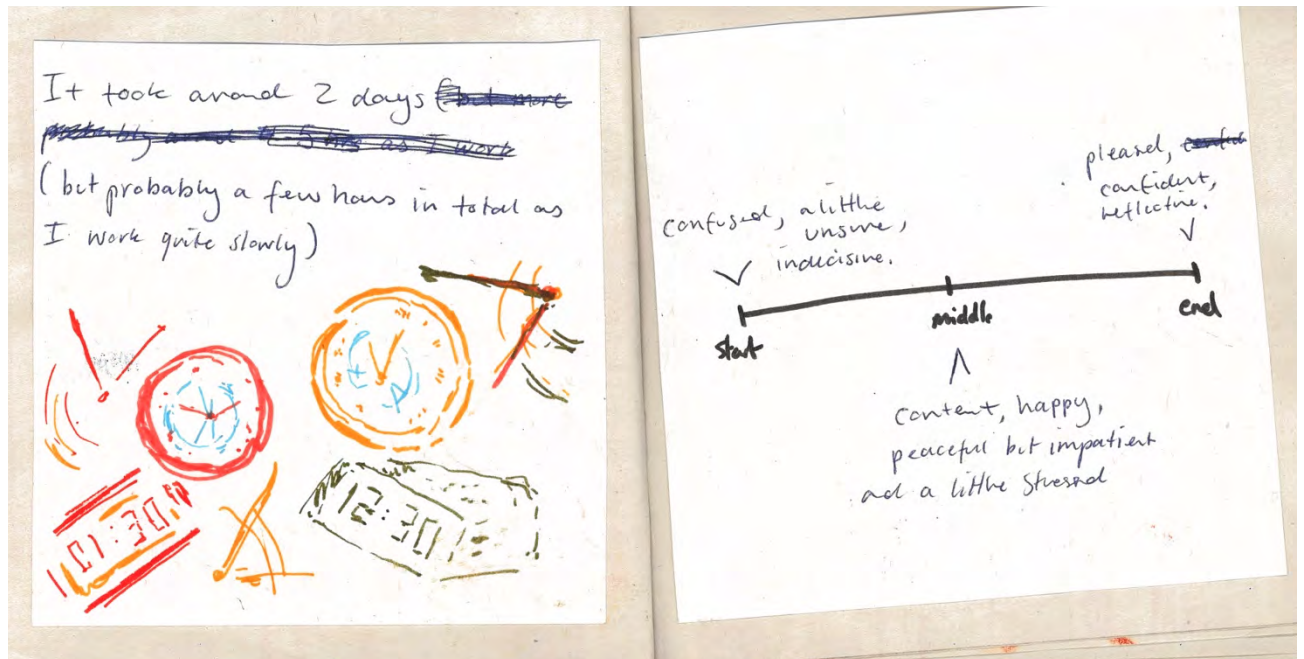 It took around 2 days
(but probably a few hours in total as
I work quite slowly)
01:30
12:30
confused, a little
unsure,
indecisive.
pleased,
confident,
reflective.
start
middle
end
content, happy,
peaceful but impatient
and a little stressed